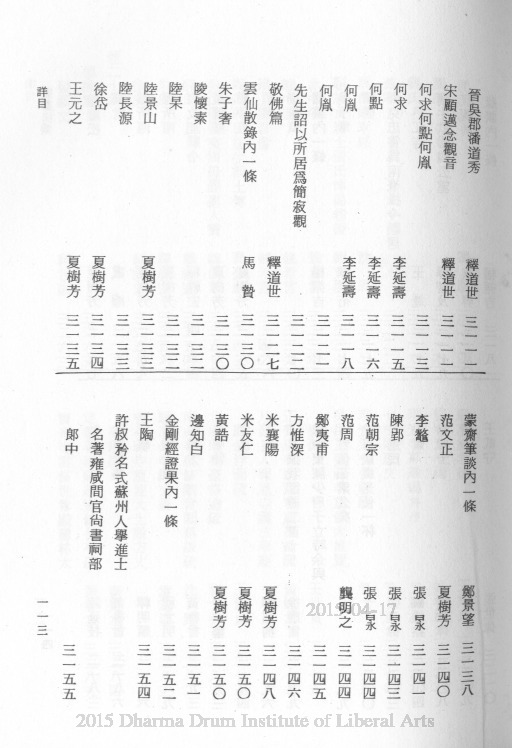 晉吳郡潘道秀 釋道世 三一一一
宋顧邁念觀音 釋道世 三一一一
何求何點何胤 三一一三
何求 李延壽 三一一五
何點 李延壽 三一一六
何胤 李延壽 三一一八
何胤 三一二一
先生詔以所居爲簡寂觀 三一二二
敬佛篇 釋道世 三一二七
雲仙散錄內一條 馬贄 三一三〇
朱子奢 三一三〇
陵懷素 三一三二
陸杲 三一三二
陸景山 夏樹芳 三一三三
陸長源 三一三三
徐岱 夏樹芳 三一三四
王元之 夏樹芳 三一三五
蒙齋筆談內一條 鄭景望 三一三八
范文正 夏樹芳 三一四〇
李鼇 張昶 三一四一
陳郢 張昶 三一四三
范朝宗 張昶 三一四四
范周 龔明之 三一四四
鄭夷甫 三一四五
方惟深 三一四六
米襄陽 夏樹芳 三一四八
米友仁 夏樹芳 三一五〇
黃誥 夏樹芳 三一五〇
邊知白 三一五一
金剛經證果內一條 三一五二
王陶 三一五四
許叔矜名式蘇州人擧進士
名著雍咸間官尙書祠部
郎中 三一五五
詳目
一一三
2015-04-17
2015 Dharma Drum Institute of Liberal Arts